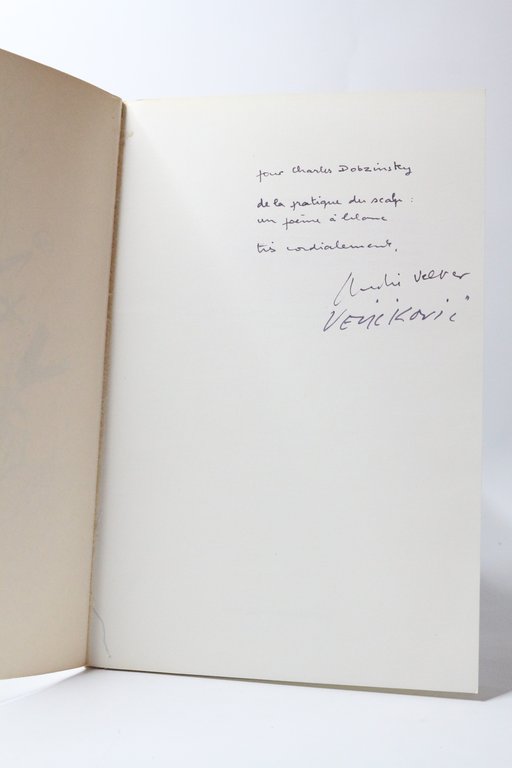 pour Charles Dobzinsky
de la pratique du scalp :
un poème à blanc
très cordialement,
André Velter
VELIČKOVIĆ